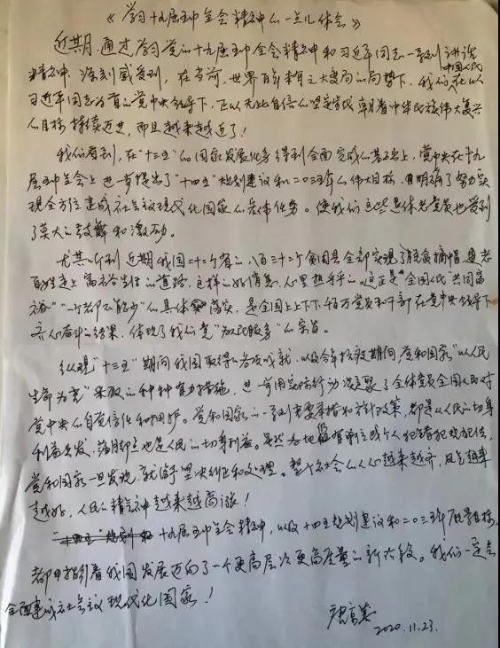 《学习十九届五中全会精神的一点儿体会》
近期，通过学习党的十九届五中全会精神和习近平同志一系列讲话
精神，深刻感受到，在当前，世界百年未有之大变局的局势下，我们中国人民在以
习近平同志为首的党中央领导下，正以无比自信的坚定步伐朝着中华民族伟大复兴
的目标持续迈进，而且越来越近了！
我们看到，在“十三五”的国家发展任务得到全面完成的基础上，党中央在十九
届五中全会上进一步提出了“十四五”规划建议和二〇三五年的伟大目标，明确了努力实
现全方位建成社会主义现代化国家的具体任务。使我们这些退休老党员也受到
了莫大的鼓舞和激励。
尤其看到近期我国二十二个省的八百三十二个贫困县全部实现了脱贫摘帽，
百姓走上富裕生活的道路，这样的好消息，心里热乎乎的，这正是“全国人民”共同富
裕”“一个都不能少”的具体落实，是全国上上下下，千百万党员和干部在党中央领导下
齐心奋斗的结果，体现了我们党“为民服务”的宗旨。
纵观“十三五”期间我国取得的各项成就，以及今年抗疫期间党和国家“以人民
生命为重”采取的种种有力措施，进一步用实际行动凝聚了全体党员全国人民对
党中央的自觉信任和拥护。党和国家的一系列重要举措和方针政策，都是从人民的切身
利益出发，落脚点也是人民的切身利益。虽然各地
党和国家一旦发现，就给予坚决纠正和处理。整个社会的人心越来越齐，风气越来
越好，人民的精神越来越高涨！
十九届五中全会精神，以及十四五规划建议和二〇三五年愿景目标，
都指引着我国发展迈向了一个更高层次更高质量的新台阶。我们一定会
全面建成社会主义现代化国家！
2020.11.23.